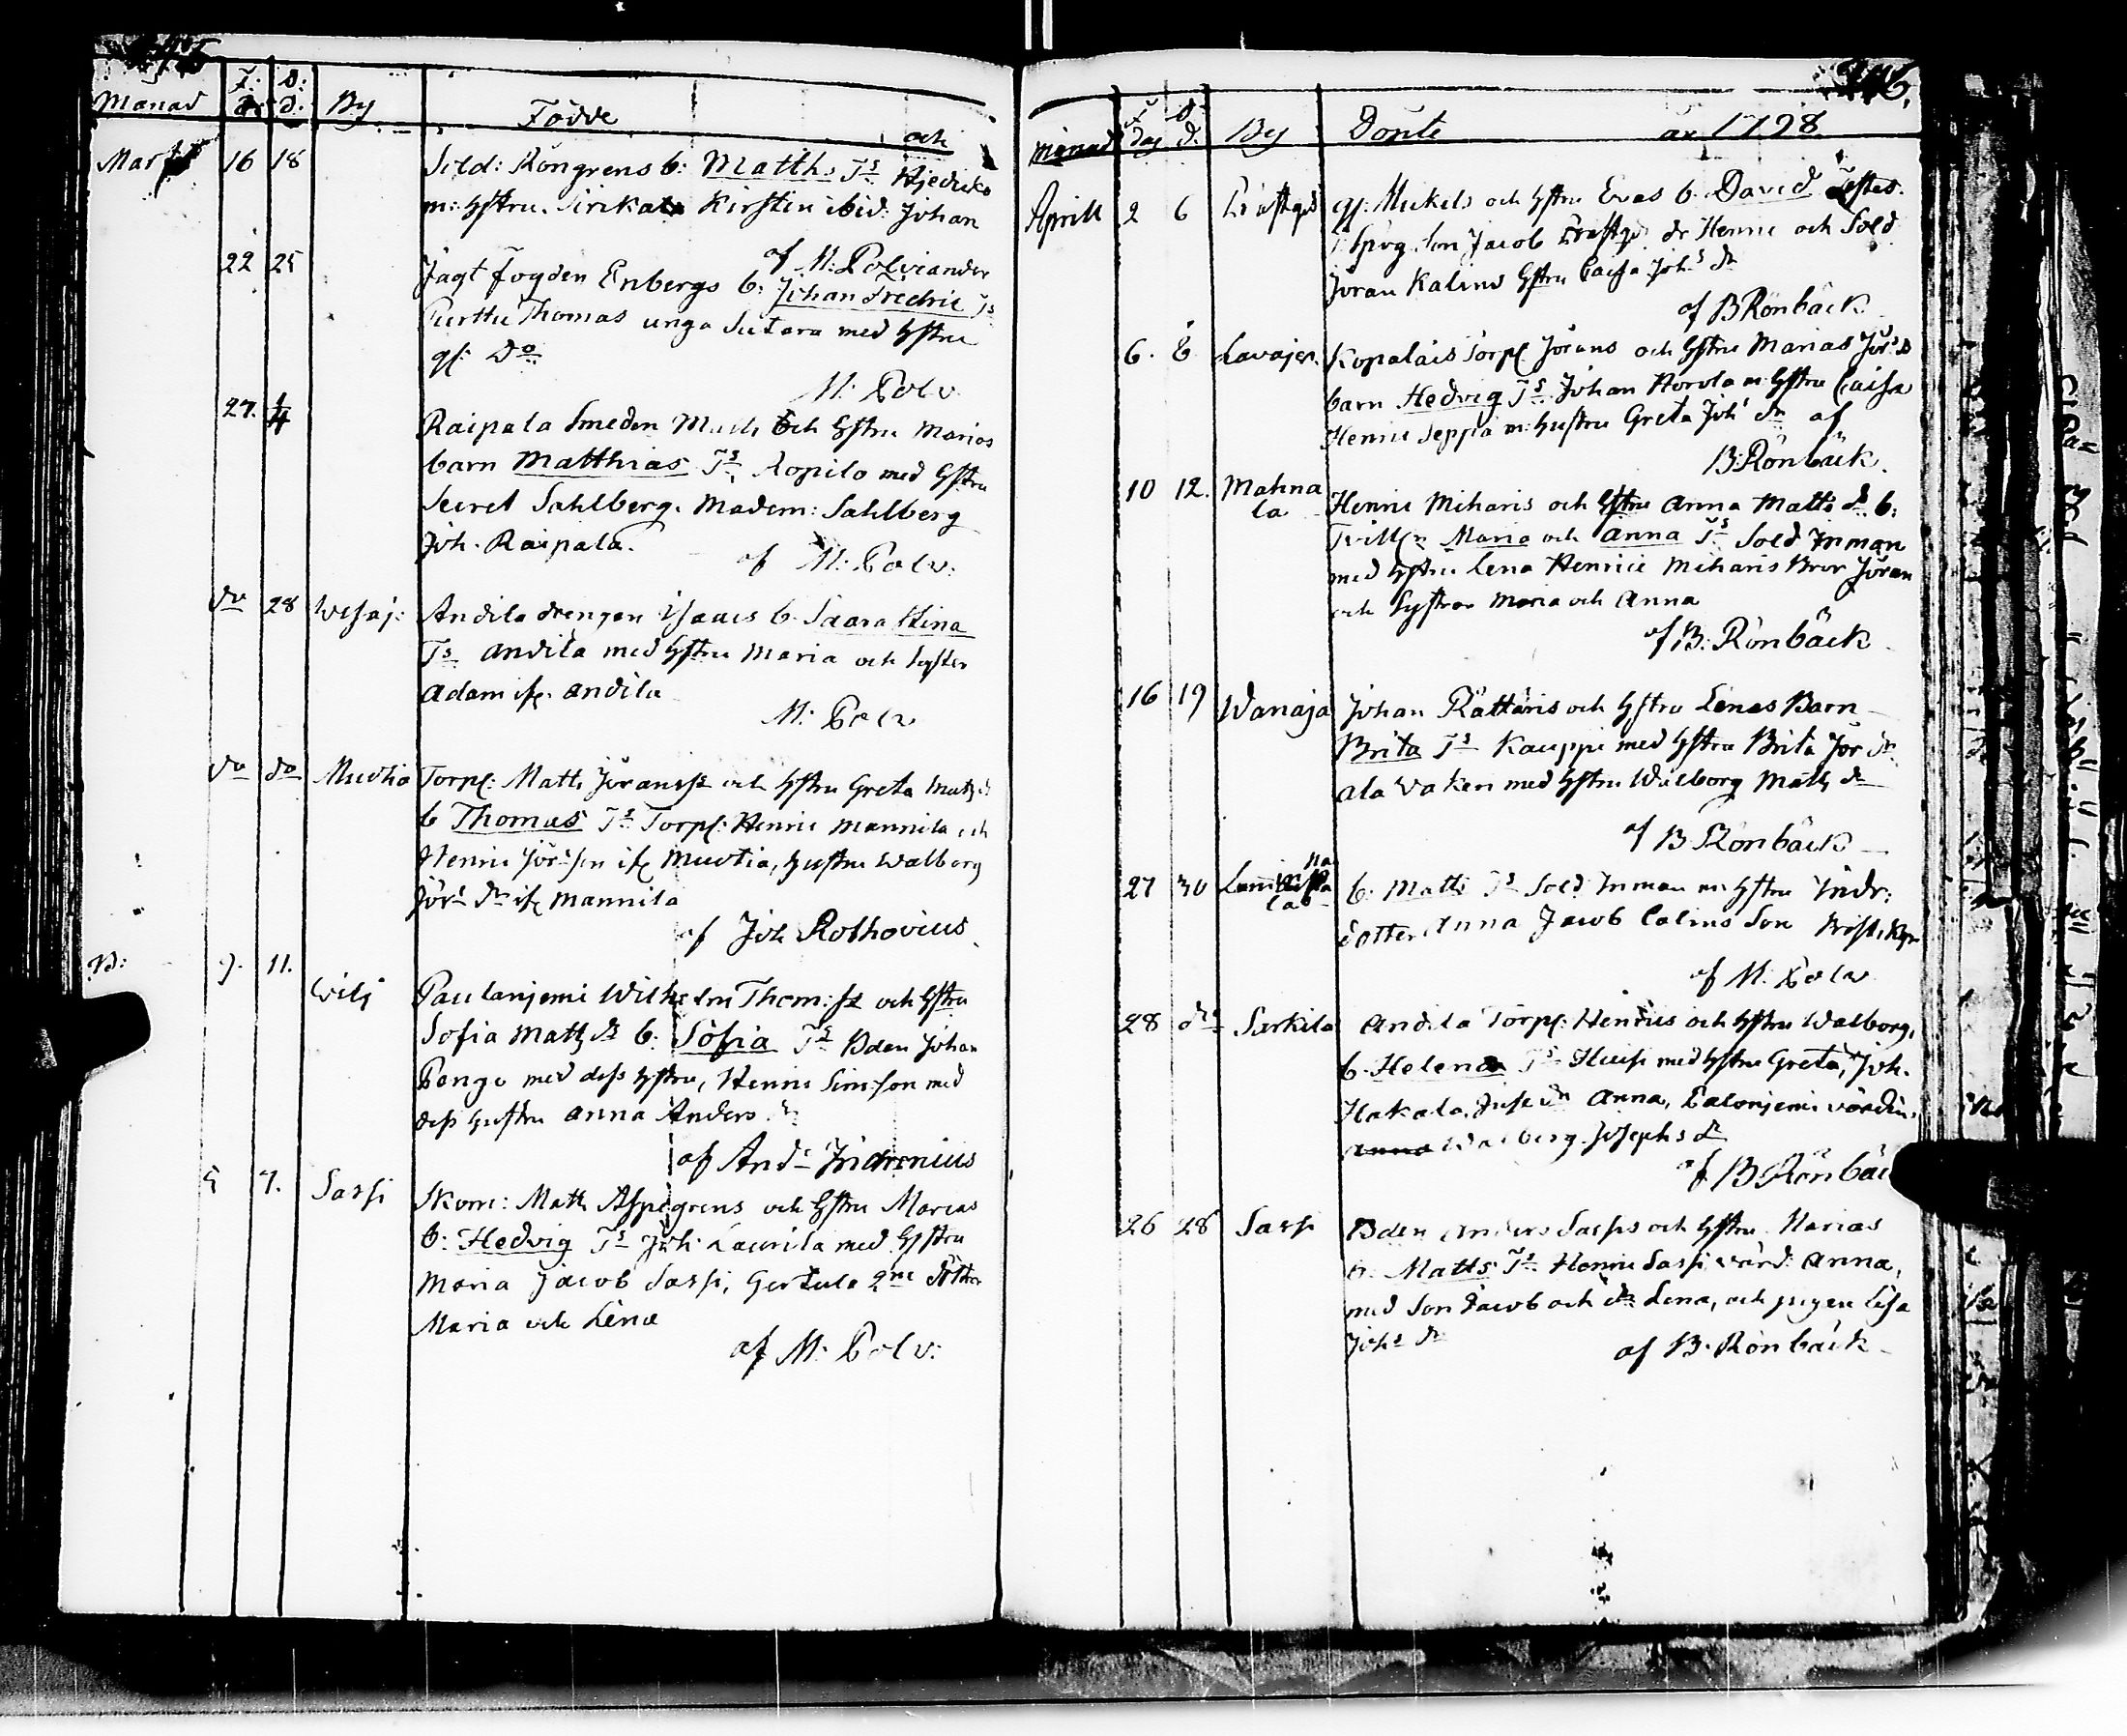 Månad F: D: By Födde och
d. d.
Mart 16 18 Sold: Röngrens b: Matth. Ts
m: hstru. Kirstin ibid: Johan
af M: Polviander
22 25 Jagt Fogden Enbergs b: Johan Fredric Ts
Purttu Thomas unga Sutara med hstru
Do
M: Polv
27. 1/4 Raipala Smeden Matts och hstru Marias
barn Matthias Ts. Ropilo med hstru
Secret Sahlberg. Madem: Sahlberg
Joh. Raipala.
af M: Polv:
do 28 Wesaj: Andila drengen Isaacs b. Saara Stina
Ts Andila med hstru Maria och Syster
Adam Andila
M: Polv
do do Muotia Torp: Matts Jöranss och hstru Greta Matsd
b Thomas Ts Torp: Henric Mannila och
Henric Jörsson Muotia, hustru Walborg
Jörs dr Mannila
af Joh Rothovius
9. 11. Wilj Paulanjemi Wilhelm Thom:ss och hstru
Sofia Matts dr b: Sofia Ts Bden Johan
Pengo med dess hstru, Henric Simsson med
dess hustru Anna Anders dr
af Ands Indrenius
5 7. Sassi Skom: Matts Aspegrens och hstru Marias
b: Hedvig Ts Joh: Laurila med hstru
Maria Jacob Sassi, Gertula 2ne döttrar
Maria och Lena
af M: Polv:
246.
månad F D By Dönte år 1798
dag d.
Aprill 2 6 Mickels och hstru Evas b. David Testes.
Son Jacob dr Henric och Sold
Jöran Kalins hstru Caisa Johs dr
af B Rönbäck
6. 8 Lavajer. Kopalais Torp Jörans och hstru Marias Jörs d
barn Hedvig Ts. Johan Horola m hstru Caisa
Henric Seppä m: hustru Greta Johs dr af
B: Rönbäck.
10 12. Mahna Henric Miharis och hstru Anna Matts d. b:
la Maria och Anna Ts Sold Inman
med hstru Lena Henric Miharis Bror Jöran
och Systrar Maria och Anna
af B: Rönbäck
16 19 Wanaja Johan Rättäris och hstru Lenas Barn
Brita Ts Kauppi med hstru Brita Jör dr
ala Vaken med hstru Walborg Matts dr
af B Rönbäck
27 30 b. Matts Ts Sold Inman m hstru Indr:
dotter Anna Jacob Calins Son
af M. Polv
28 do Sarkila Andila Torp: Henrics och hstru Walborg,
b. Helena Ts Huisi med hstru Greta, Joh.
Hakala, dr Anna,
Walborg Josephs dr
af B Rönbäc
26 28 Sassi Bden Anders Sassis och hstru Marias
b. Matts Ts Henric Sassi värd: Anna,
med Son Jacob och dr Lena, och pigan Lisa
Johs dr
af B. Rönbäck